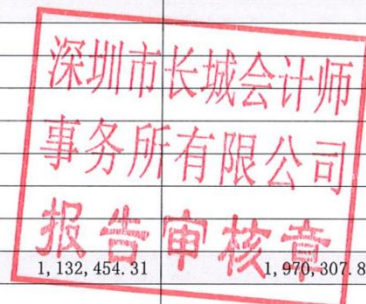 深圳市长城会计师
事务所有限公司
报告审核章
1,132,454.31 1,970,307.8